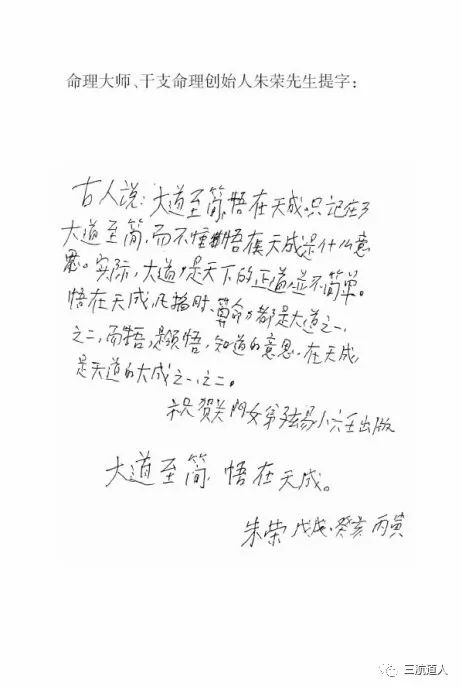 命理大师、干支命理创始人朱荣先生提字：
古人说：大道至简，悟在天成。只记在了
大道至简，而不懂悟在天成是什么意
思。实际，大道，是天下的正道，並不简单。
悟在天成，凡择时、算命，都是大道之一、
之二，而悟，是顿悟，知道的意思，在天成，
是天道的大成之一、之二。
祝贺关门女弟弦易小六壬出版
大道至简，悟在天成。
朱荣 戊戌、癸亥 丙寅
三航道人